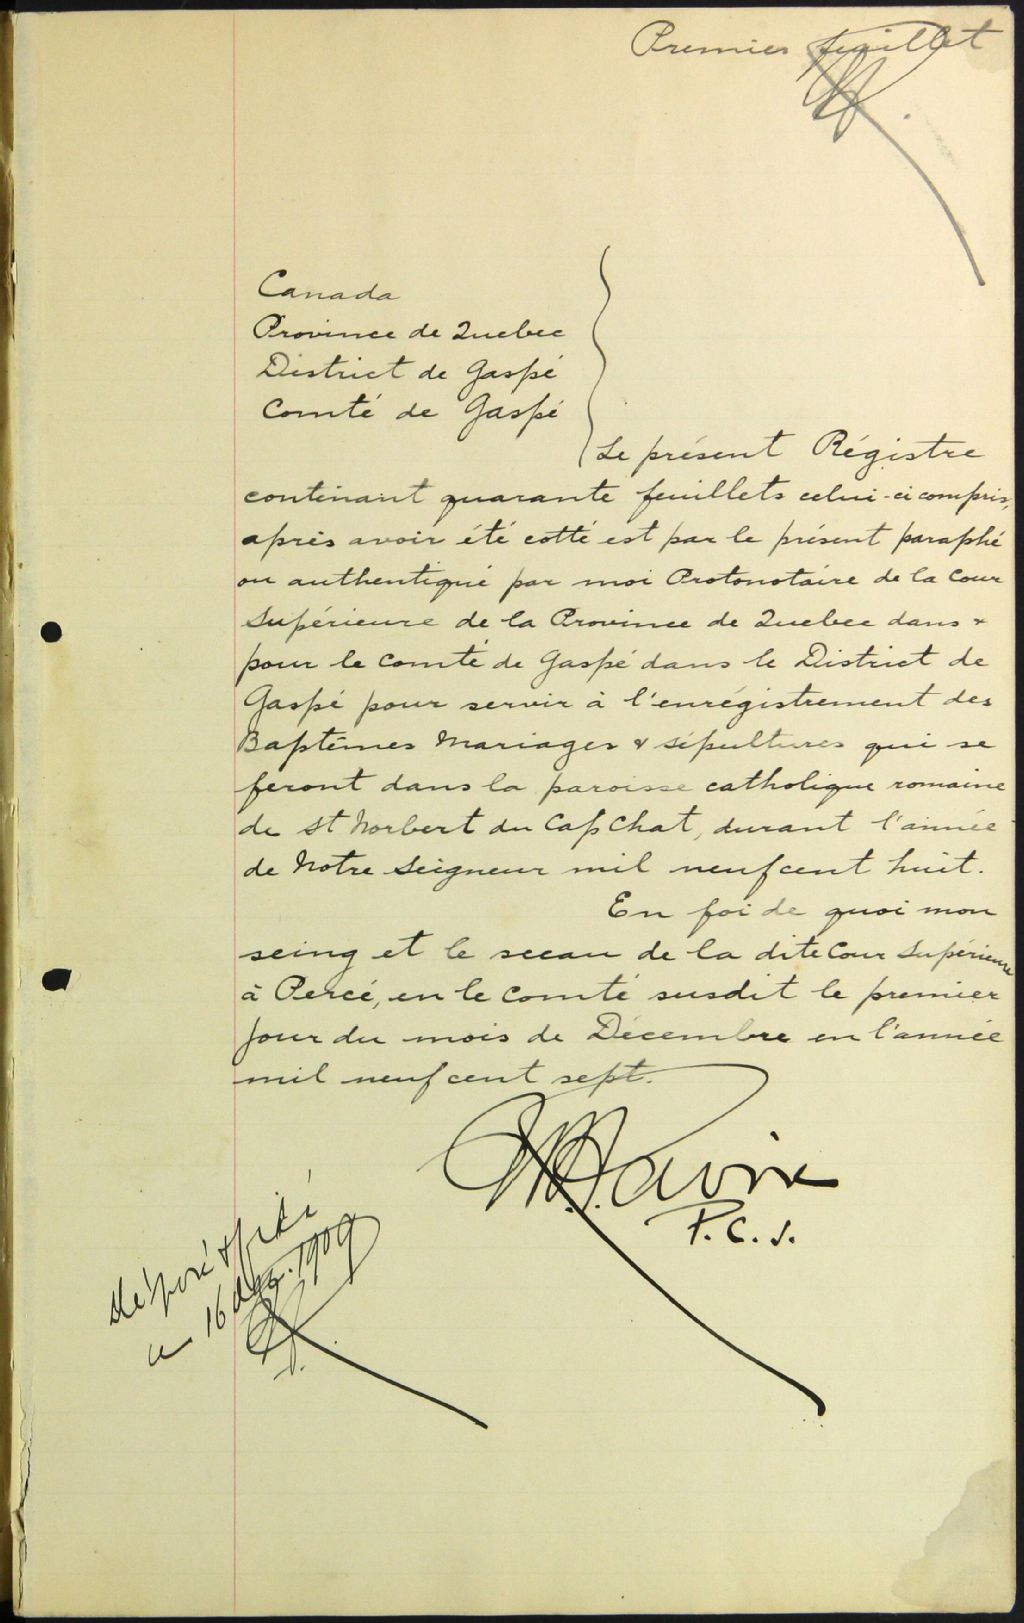 Premier feuillet
Canada
Province de Quebec
District de Gaspé
Comté de Gaspé
Le présent Régistre
contenant quarante feuillets celui-ci compris,
après avoir été cotté est par le présent paraphé
ou authentiqué par moi Protonotaire de la Cour
Supérieure de la Province de Quebec dans &
pour le Comté de Gaspé dans le District de
Gaspé pour servir à l'enrégistrement des
Baptêmes Mariages & sépultures qui se
feront dans la paroisse catholique romaine
de St Norbert du Cap Chat, durant l'année
de Notre Seigneur mil neuf cent huit.
En foi de quoi mon
seing et le sceau de la dite Cour Supérieure
à Percé, en le Comté susdit le premier
jour du mois de Décembre en l'année
mil neuf cent sept.
Lavoie
P.C.S.
déposé &
ce 16 1909